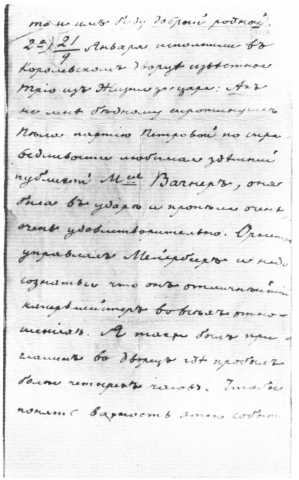 то и имъ буду доброй родной.
2е) 21/9 Января исполнили въ
Королевскомъ дворцѣ извѣстное
тріо изъ Жизни за царя: Ахъ
не мнѣ бѣдному сиротинушкѣ
Пѣла партію Петровой по спра-
ведливости любимая здѣшней
публикой Mlle Вагнеръ, она
была въ ударѣ и пропѣла очень
очень удовлетворительно. Оркест
управлялъ Мейерберъ и надо
сознаться что онъ отличнѣйшій
капельмейстеръ во всѣхъ отно-
шеніяхъ. Я также былъ при-
глашенъ во дворецъ гдѣ пробылъ
болѣе четырехъ часовъ. Чтобы
понять важность этого событ